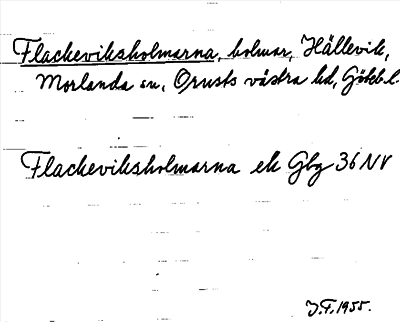 Flackeviksholmarna, holmar, Hällevik,
Morlanda sn, Orusts västra hd, Götebl.
Flackeviksholmarna ek Gbg 36 NV
J.F. 1955.